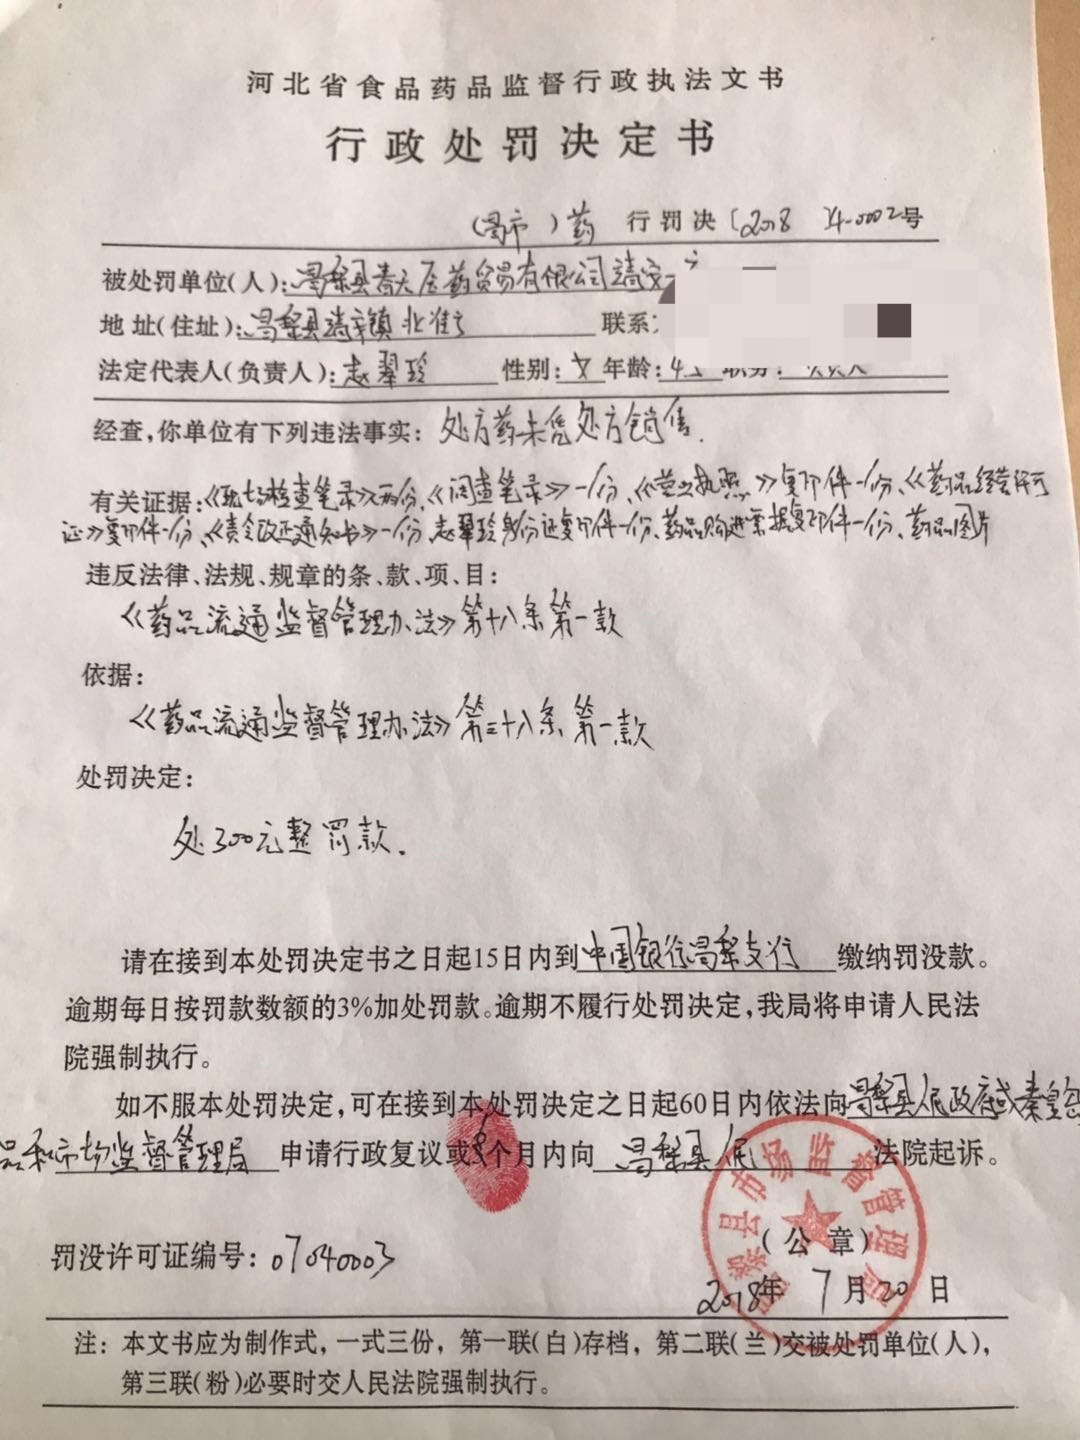 河北省食品药品监督行政执法文书
行政处罚决定书
(昌市)药 行罚决〔2018 24-0002号
被处罚单位(人):昌黎县青天医药贸易有限公司靖安一
地址(住址):昌黎县靖安镇北 联系
法定代表人(负责人):赵翠玲 性别:女 年龄:4
经查,你单位有下列违法事实:处方药未凭处方销售.
有关证据:《现场检查笔录》两份、《调查笔录》一份、《营业执照》复印件一份、《药品经营许可
证》复印件一份、《责令改正通知书》一份、赵翠玲身份证复印件一份、药品购进票据复印件一份、药品图片
违反法律、法规、规章的条、款、项、目:
《药品流通监督管理办法》第十八条第一款
依据:
《药品流通监督管理办法》第三十八条第一款
处罚决定:
处300元整罚款.
请在接到本处罚决定书之日起15日内到中国银行昌黎支行 缴纳罚没款。
逾期每日按罚款数额的3%加处罚款。逾期不履行处罚决定,我局将申请人民法
院强制执行。
如不服本处罚决定,可在接到本处罚决定之日起60日内依法向昌黎县人民政府或秦皇
品和市场监督管理局 申请行政复议或 个月内向 昌黎县人民 法院起诉。
罚没许可证编号:07040003
(公章)
昌黎县市场监督管理局
2018年7月20日
注:本文书应为制作式,一式三份,第一联(白)存档,第二联(兰)交被处罚单位(人),
第三联(粉)必要时交人民法院强制执行。